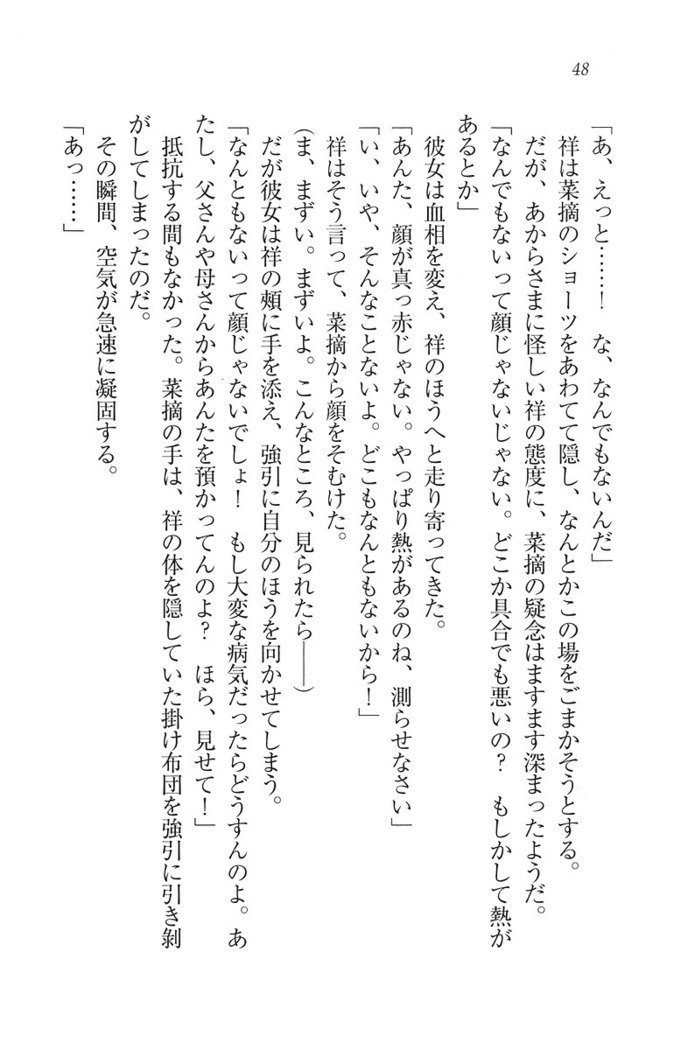 48
「あ、えっと……！　な、なんでもないんだ」
　祥は菜摘のショーツをあわてて隠し、なんとかこの場をごまかそうとする。
　だが、あからさまに怪しい祥の態度に、菜摘の疑念はますます深まったようだ。
「なんでもないって顔じゃないじゃない。どこか具合でも悪いの？　もしかして熱が
あるとか」
　彼女は血相を変え、祥のほうへと走り寄ってきた。
「あんた、顔が真っ赤じゃない。やっぱり熱があるのね、測らせなさい」
「い、いや、そんなことないよ。どこもなんともないから！」
　祥はそう言って、菜摘から顔をそむけた。
（ま、まずい。まずいよ。こんなところ、見られたら――）
　だが彼女は祥の頰に手を添え、強引に自分のほうを向かせてしまう。
「なんともないって顔じゃないでしょ！　もし大変な病気だったらどうすんのよ。あ
たし、父さんや母さんからあんたを預かってんのよ？　ほら、見せて！」
　抵抗する間もなかった。菜摘の手は、祥の体を隠していた掛け布団を強引に引き剝
がしてしまったのだ。
　その瞬間、空気が急速に凝固する。
「あっ……」